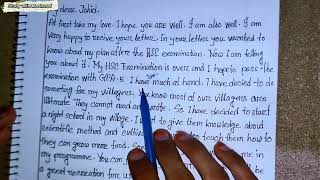 Study with Maksud
dear Jahid,
At first take my love. I hope you are well. I am also well. I am
very happy to receive your letter. In your letter you wanted to
know about my plan after the HSC examination. Now I am telling
you about it. My HSC Examination is over and I hope to pass the
examination with GPA-5. I have much at hand. I have decided to do
something for my villagers. You know most of our villagers are
illiterate. They cannot read and write. So I have decided to start
a night school in my village. I want to give them knowledge about
scientific method and cultiv to teach them how to
they can grow more food. So me in
my programme. You can be
a great recreation for us